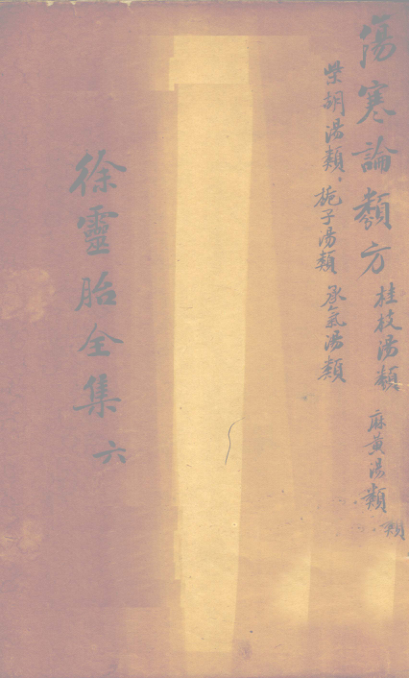 傷寒論類方 桂枝湯類 麻黄湯類 類
柴胡湯類 · 梔子湯類 承氣湯類
徐靈胎全集 六